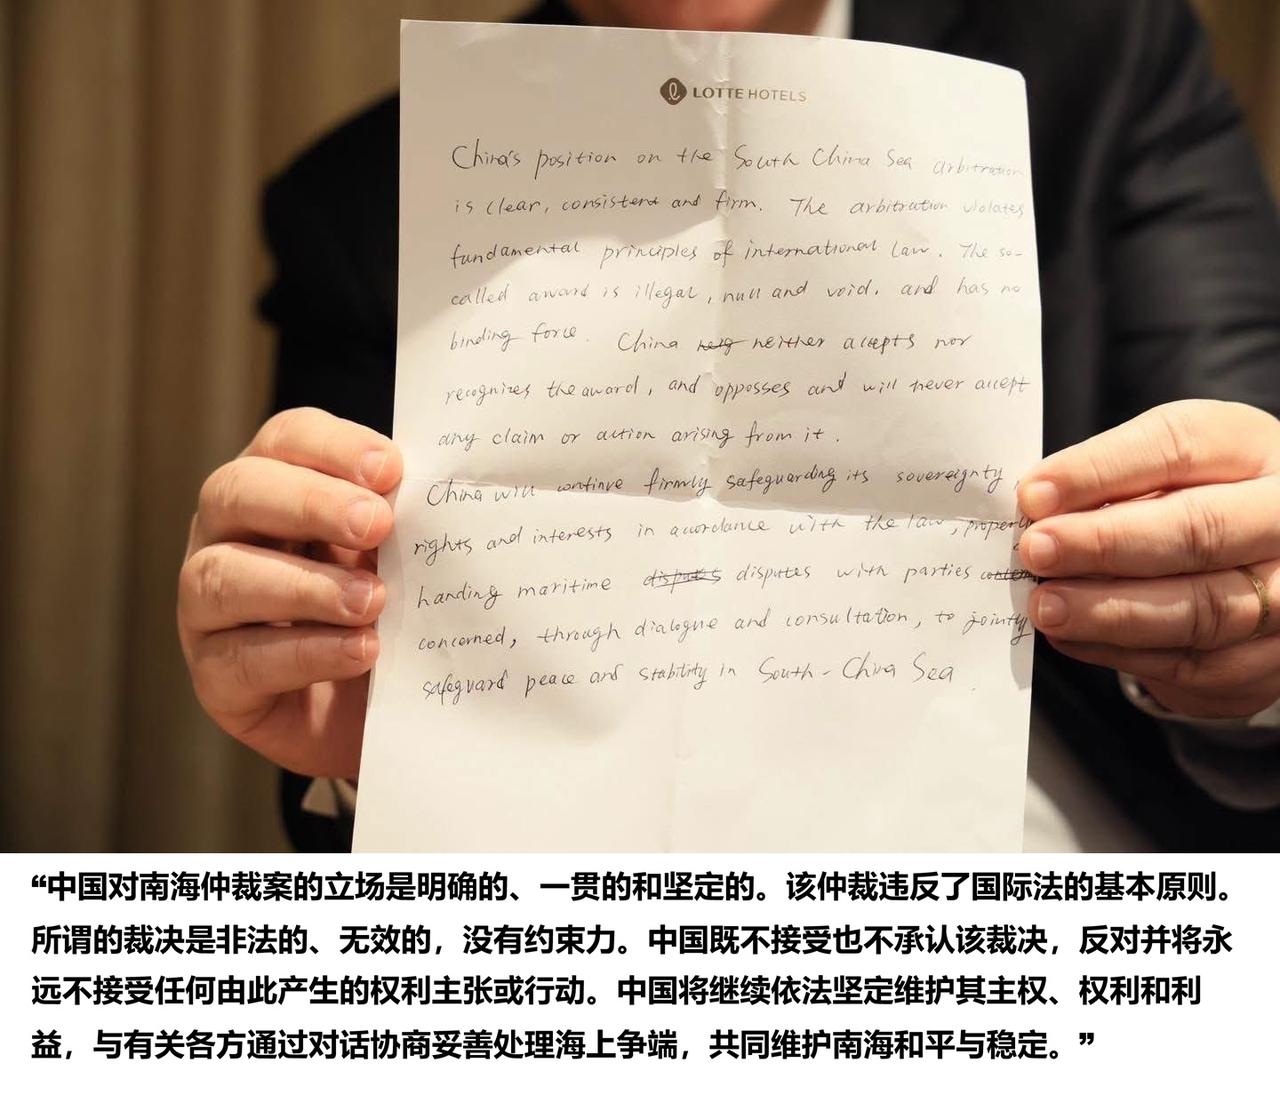 LOTTE HOTELS
China's position on the South China Sea arbitration
is clear, consistent and firm. The arbitration violates
fundamental principles of international law. The so-
called award is illegal, null and void. and has no
binding force. China neither accepts nor
recognizes the award, and opposses and will never accept
any claim or action arising from it.
China will continue firmly safeguarding its sovereignty
rights and interests in accordance with the law, properly
handing maritime disputes disputes with parties
concerned, through dialogue and consultation, to jointly
safeguard peace and stability in South-China Sea
“中国对南海仲裁案的立场是明确的、一贯的和坚定的。该仲裁违反了国际法的基本原则。
所谓的裁决是非法的、无效的，没有约束力。中国既不接受也不承认该裁决，反对并将永
远不接受任何由此产生的权利主张或行动。中国将继续依法坚定维护其主权、权利和利
益，与有关各方通过对话协商妥善处理海上争端，共同维护南海和平与稳定。”